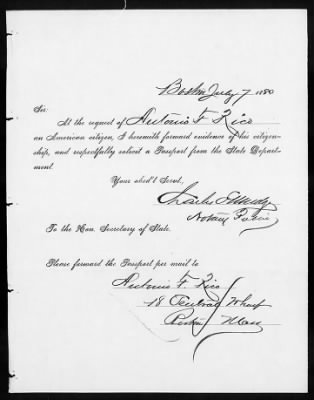 Boston July 7 1880
Sir:
At the request of Antonio F. Rico
an American citizen, I herewith forward evidence of his citizen-
ship, and respectfully solicit a Passport from the State Depart-
ment.
Your obed't Servt,
Charles
Notary Public
To the Hon. Secretary of State.
Please forward the Passport per mail to
Antonio F. Rico
18 Central Wharf
Boston Mass